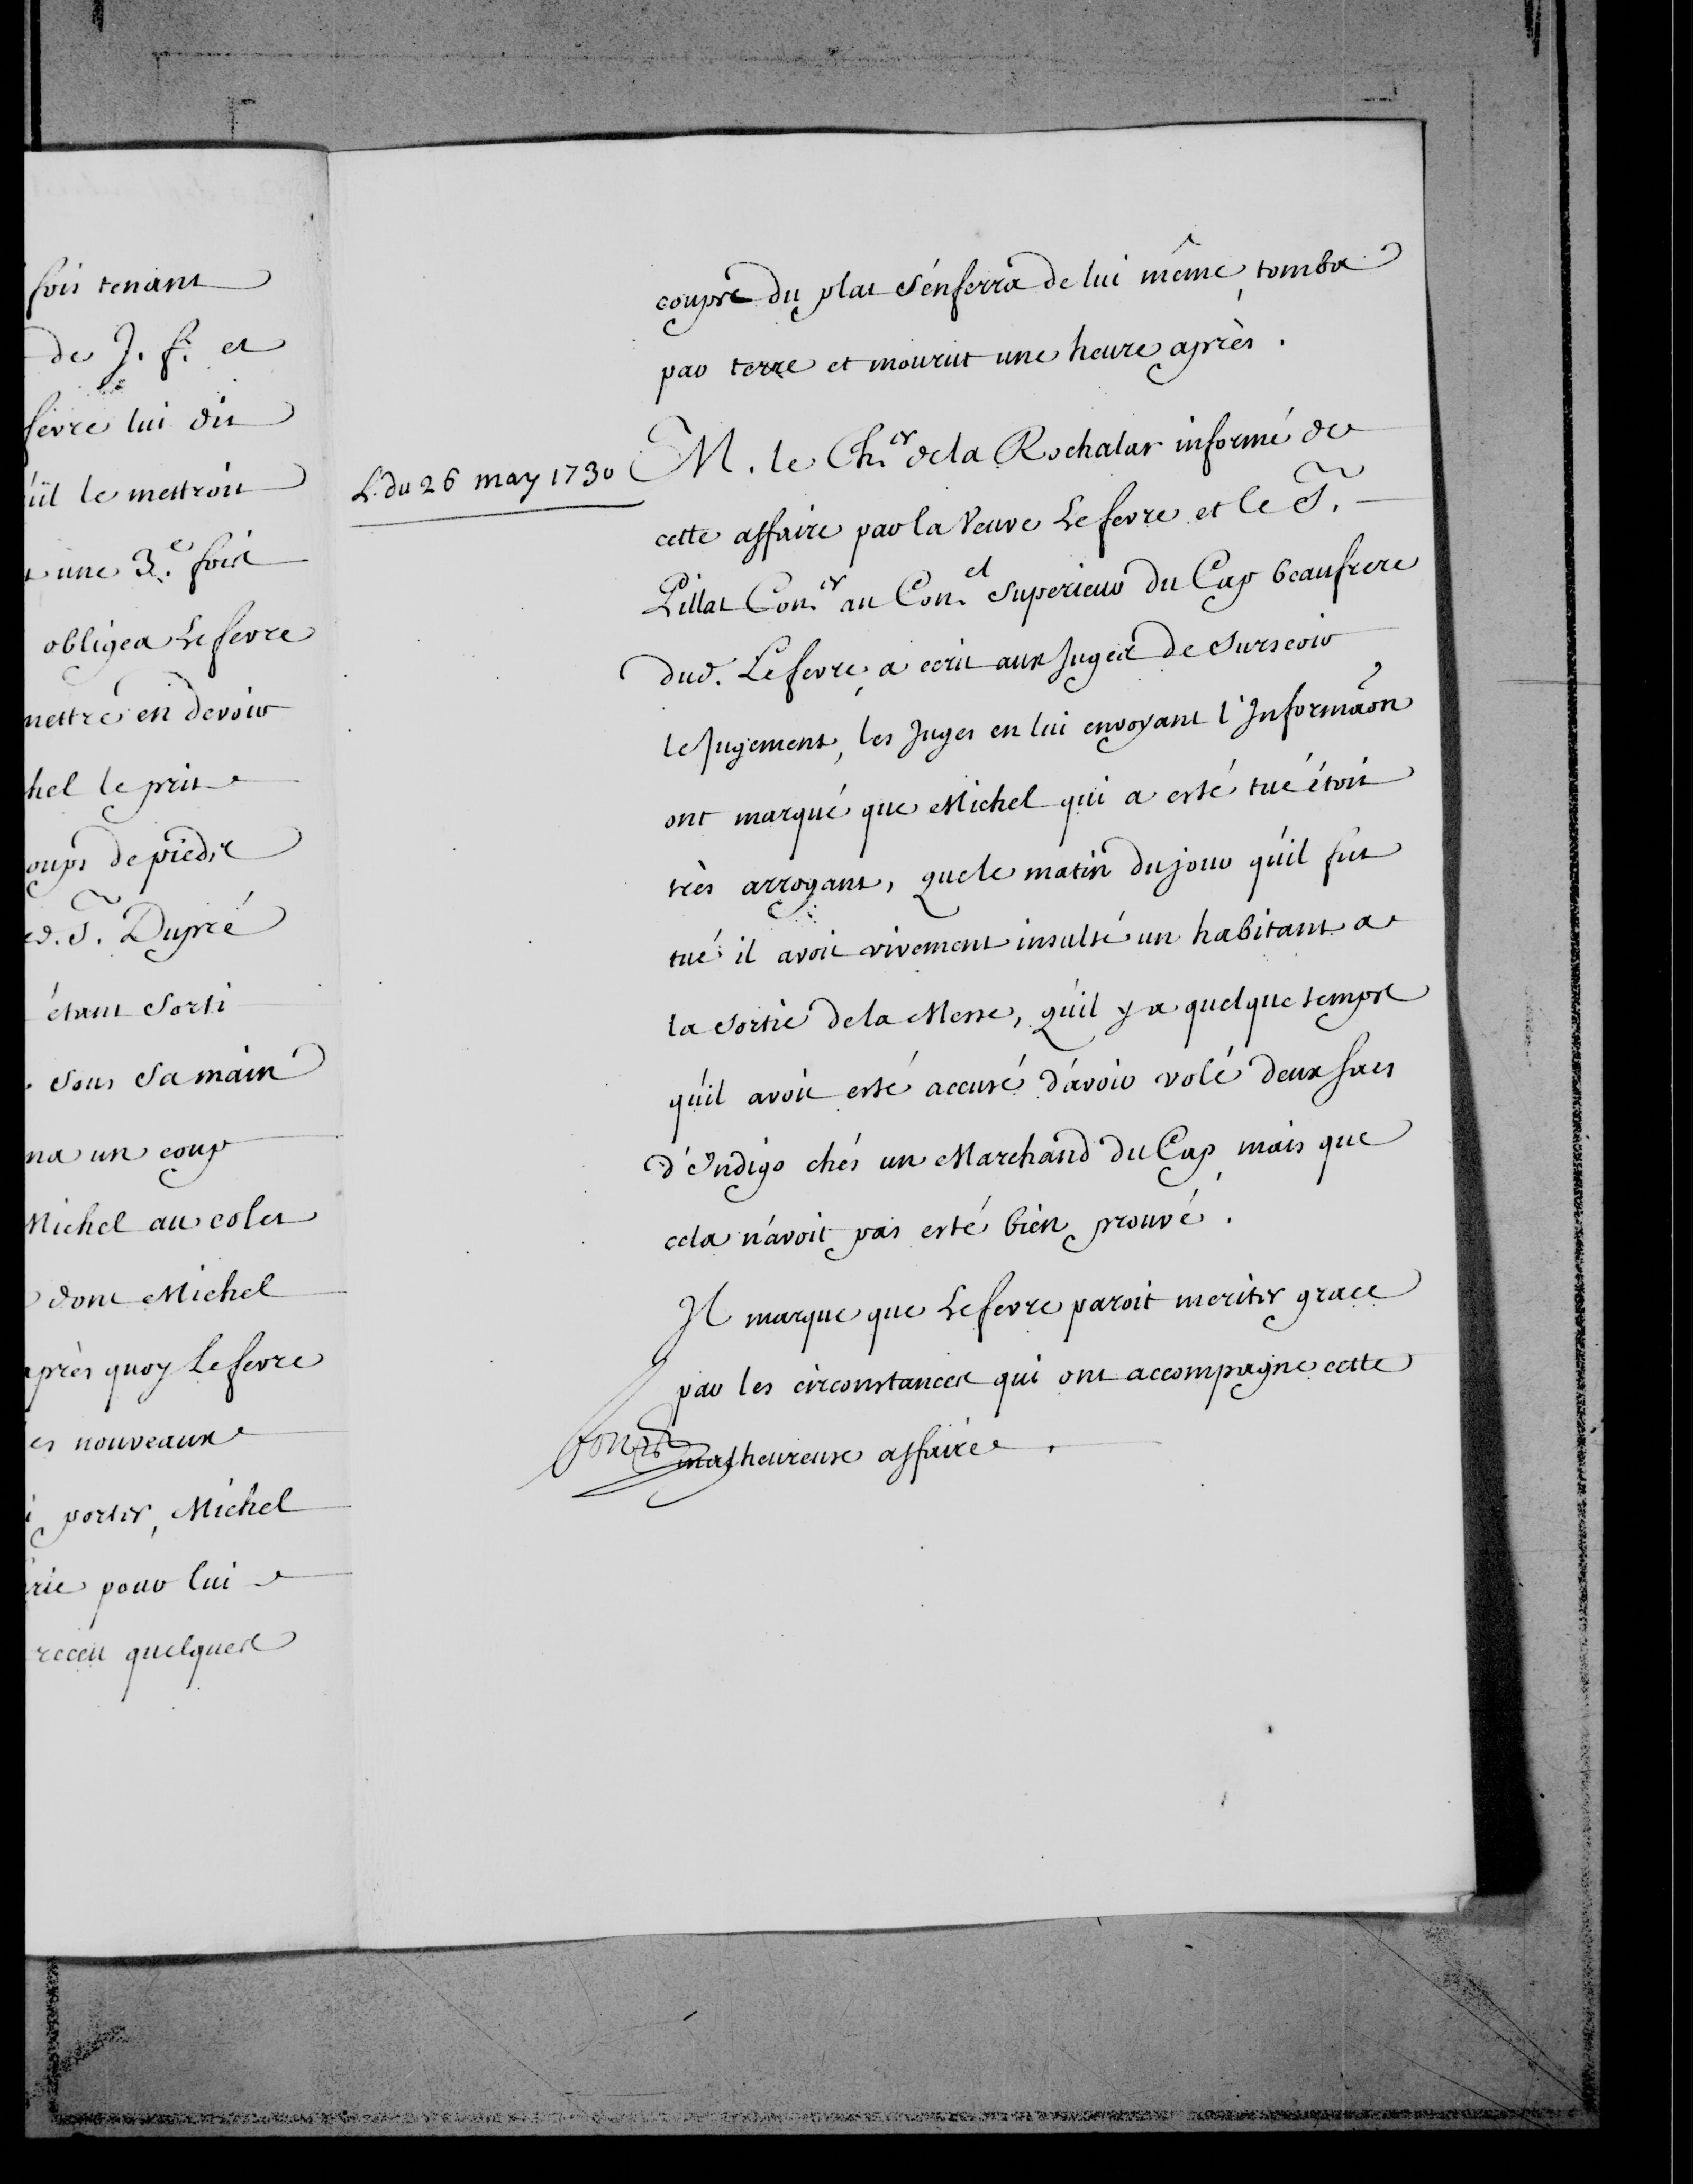 fois tenant
de J. f. et
fevre lui dit
u'il le mettroit
une 3.e fois
obligea Lefevre
mettre en devoir
hel le prit
oups de pieds
ed. S. Dupré
étant sorti
sous sa main
na un coup
Michel au colet
dont Michel
après quoy Lefevre
es nouveaux
porter, Michel
rie pour lui
receu quelques
coups du plat s'enferra de lui même, tomba
par terre et mourut une heure après.
L. du 26 may 1730
M. le Ch.er de la Rochalar informé de
cette affaire par la Veuve Lefevre et le S.
Pillat Con.er au Con.el Superieur du Cap beaufrere
dud. Lefevre, a ecrit aux Juges de Surseoir
le Jugement, les Juges en lui envoyant l'Informaōn
ont marqué que Michel qui a esté tué étoit
très arrogant, que le matin du jour qu'il fut
tué il avoit vivement insulté un habitant a
la sortie de la Messe, qu'il y a quelque temps
qu'il avoit esté accusé d'avoir volé deux sacs
d'Indigo chés un Marchand du Cap, mais que
cela n'avoit pas esté bien prouvé.
Il marque que Lefevre paroit meriter grace
par les circonstances qui ont accompagné cette
malheureuse affaire.
bon